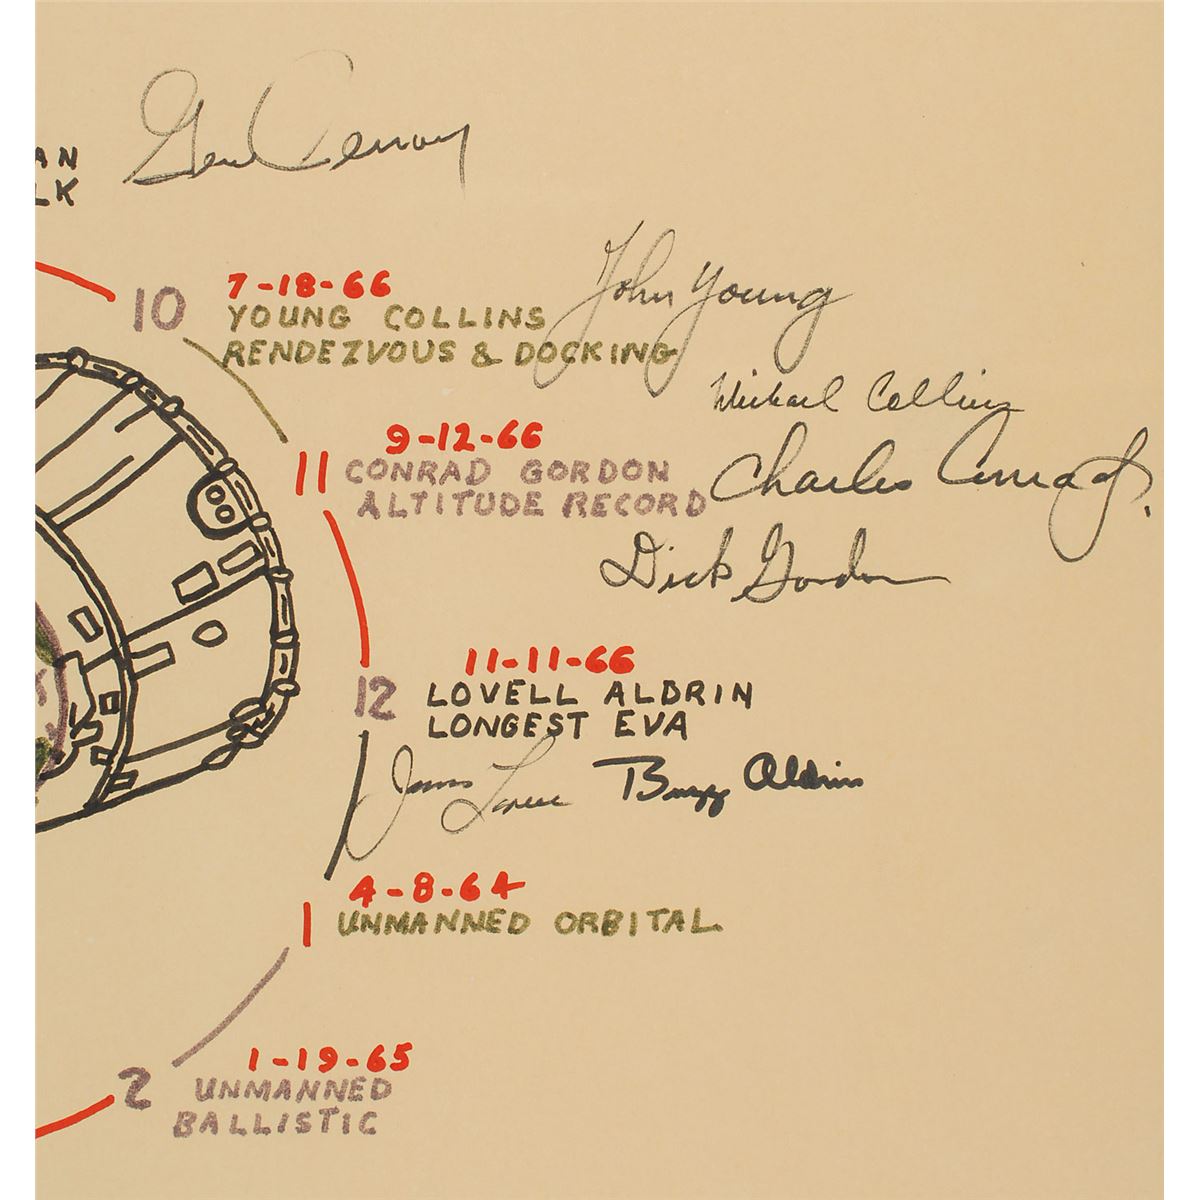 Gene Cernan
AN
LK
7-18-66
10 YOUNG COLLINS
RENDEZVOUS & DOCKING
John Young
Michael Collins
9-12-66
11 CONRAD GORDON
ALTITUDE RECORD
Charles Conrad Jr.
Dick Gordon
11-11-66
12 LOVELL ALDRIN
LONGEST EVA
James Lovell Buzz Aldrin
4-8-64
1 UNMANNED ORBITAL
1-19-65
2 UNMANNED
BALLISTIC